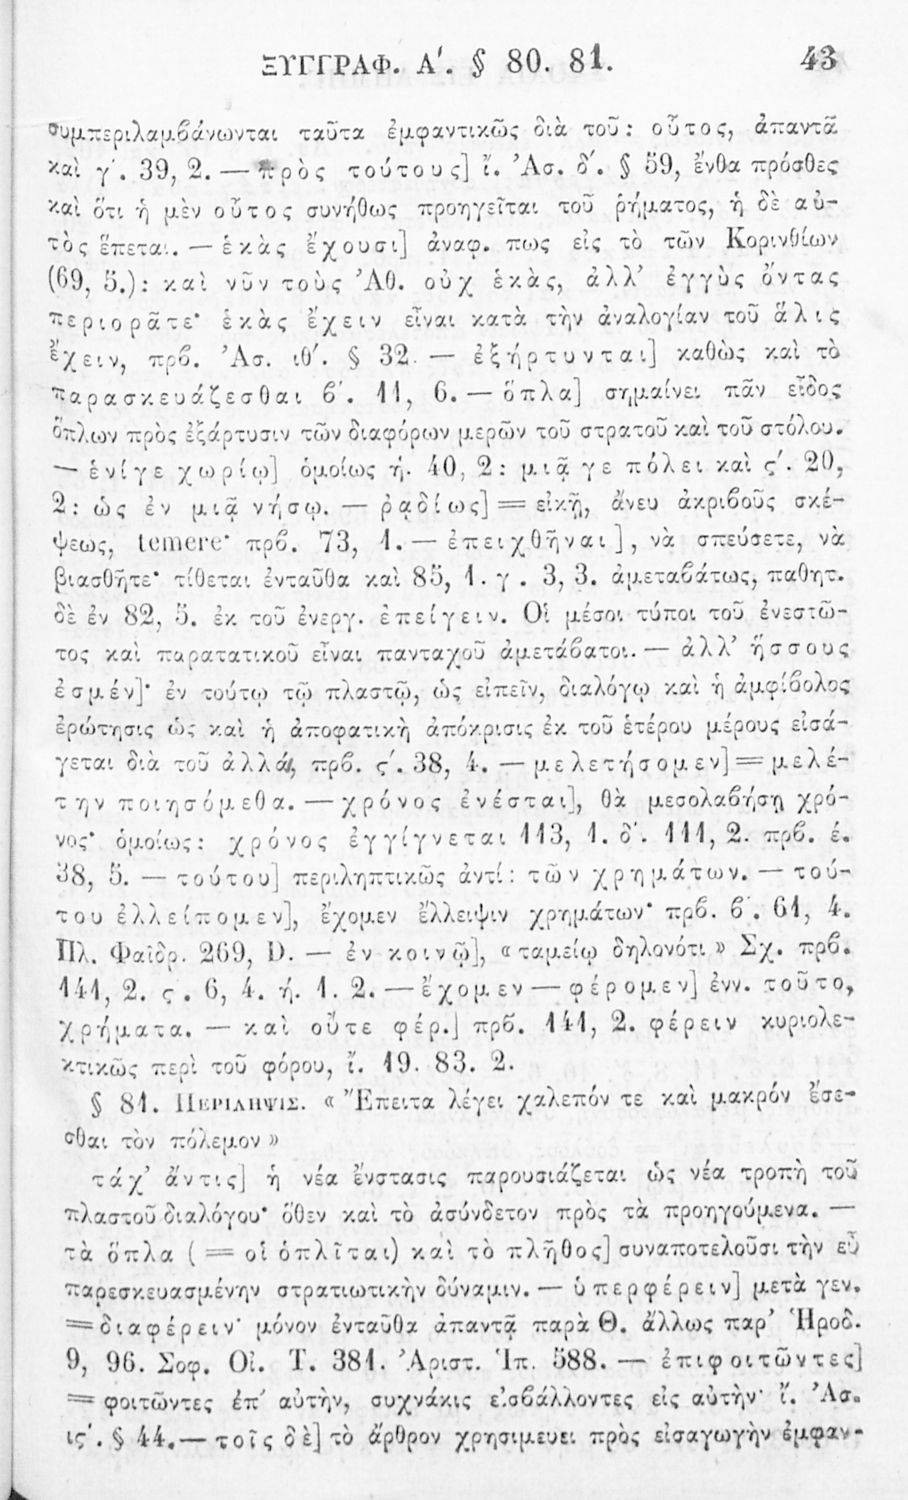 ΞΥΓΓΡΑΦ. Α΄. § 80. 81. 43
συμπεριλαμβάνωνται ταῦτα ἐμφαντικῶς διὰ τοῦ: οὗτος, ἁπαντᾷ
καὶ γ΄. 39, 2. — πρὸς τούτους] ἴ. Ἀσ. δ΄. § 59, ἔνθα πρόσθες
καὶ ὅτι ἡ μὲν οὗτος συνήθως προηγεῖται τοῦ ῥήματος, ἡ δὲ αὐ-
τὸς ἕπεται. — ἑκὰς ἔχουσι] ἀναφ. πως εἰς τὸ τῶν Κορινθίων
(69, 5.): καὶ νῦν τοὺς Ἀθ. οὐχ ἑκὰς, ἀλλ’ ἐγγὺς ὄντας
περιορᾶτε· ἑκὰς ἔχειν εἶναι κατὰ τὴν ἀναλογίαν τοῦ ἅλις
ἔχειν, πρβ. Ἀσ. ιθ΄. § 32. — ἐξήρτυνται] καθὼς καὶ τὸ
παρασκευάζεσθαι β΄. 11, 6. — ὅπλα] σημαίνει πᾶν εἶδος
ὅπλων πρὸς ἐξάρτυσιν τῶν διαφόρων μερῶν τοῦ στρατοῦ καὶ τοῦ στόλου.
— ἑνί γε χωρίῳ] ὁμοίως ή. 40, 2: μιᾷ γε πόλει καὶ ς΄. 20,
2: ὡς ἐν μιᾷ νήσῳ. — ῥᾳδίως] = εἰκῇ, ἄνευ ἀκριβοῦς σκέ-
ψεως, temere· πρβ. 73, 1. — ἐπειχθῆναι], νὰ σπεύσετε, νὰ
βιασθῆτε· τίθεται ἐνταῦθα καὶ 85, 1. γ. 3, 3. ἀμεταβάτως, παθητ.
δὲ ἐν 82, 5. ἐκ τοῦ ἐνεργ. ἐπείγειν. Οἱ μέσοι τύποι τοῦ ἐνεστῶ-
τος καὶ παρατατικοῦ εἶναι πανταχοῦ ἀμετάβατοι. — ἀλλ’ ἥσσους
ἐσμέν]· ἐν τούτῳ τῷ πλαστῷ, ὡς εἰπεῖν, διαλόγῳ καὶ ἡ ἀμφίβολος
ἐρώτησις ὡς καὶ ἡ ἀποφατικὴ ἀπόκρισις ἐκ τοῦ ἑτέρου μέρους εἰσά-
γεται διὰ τοῦ ἀλλά, πρβ. ς΄. 38, 4. — μελετήσομεν] = μελέ-
την ποιησόμεθα. — χρόνος ἐνέσται], θὰ μεσολαβήσῃ χρό-
νος· ὁμοίως: χρόνος ἐγγίγνεται 113, 1. δ΄. 111, 2. πρβ. έ.
38, 5. — τούτου] περιληπτικῶς ἀντί: τῶν χρημάτων. — τού-
του ἐλλείπομεν], ἔχομεν ἔλλειψιν χρημάτων· πρβ. β΄. 61, 4.
Πλ. Φαῖδρ. 269, D. — ἐν κοινῷ], «ταμείῳ δηλονότι» Σχ. πρβ.
141, 2. ς. 6, 4. ή. 1. 2. — ἔχομεν — φέρομεν] ἐνν. τοῦτο,
χρήματα. — καὶ οὔτε φέρ.] πρβ. 141, 2. φέρειν κυριολε-
κτικῶς περὶ τοῦ φόρου, ἴ. 19. 83. 2.
§ 81. ΠΕΡΙΛΗΨΙΣ. « Ἔπειτα λέγει χαλεπόν τε καὶ μακρόν ἔσε-
σθαι τὸν πόλεμον »
τάχ’ ἄν τις] ἡ νέα ἔνστασις παρουσιάζεται ὡς νέα τροπὴ τοῦ
πλαστοῦ διαλόγου· ὅθεν καὶ τὸ ἀσύνδετον πρὸς τὰ προηγούμενα. —
τὰ ὅπλα (= οἱ ὁπλῖται) καὶ τὸ πλῆθος] συναποτελοῦσι τὴν εὖ
παρεσκευασμένην στρατιωτικὴν δύναμιν. — ὑπερφέρειν] μετὰ γεν.
= διαφέρειν· μόνον ἐνταῦθα ἁπαντᾷ παρὰ Θ. ἄλλως παρ’ Ἡροδ.
9, 96. Σοφ. Οἰ. Τ. 381. Ἀριστ. Ἱπ. 588. — ἐπιφοιτῶντες]
= φοιτῶντες ἐπ’ αὐτὴν, συχνάκις εἰσβάλλοντες εἰς αὐτὴν· ἴ. Ἀσ.
ις΄. § 44. — τοῖς δὲ] τὸ ἄρθρον χρησιμεύει πρὸς εἰσαγωγὴν ἐμφαν-